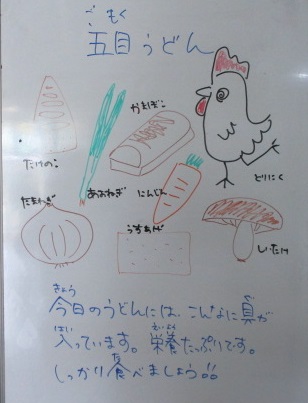 ご もく
五目うどん
かまぼこ
たけのこ
とりにく
あおねぎ
にんじん
たまねぎ
うすあげ
しいたけ
きょう
今日のうどんには、こんなに具が
はい えいよう
入っています。栄養たっぷりです。
た
しっかり食べましょう!!